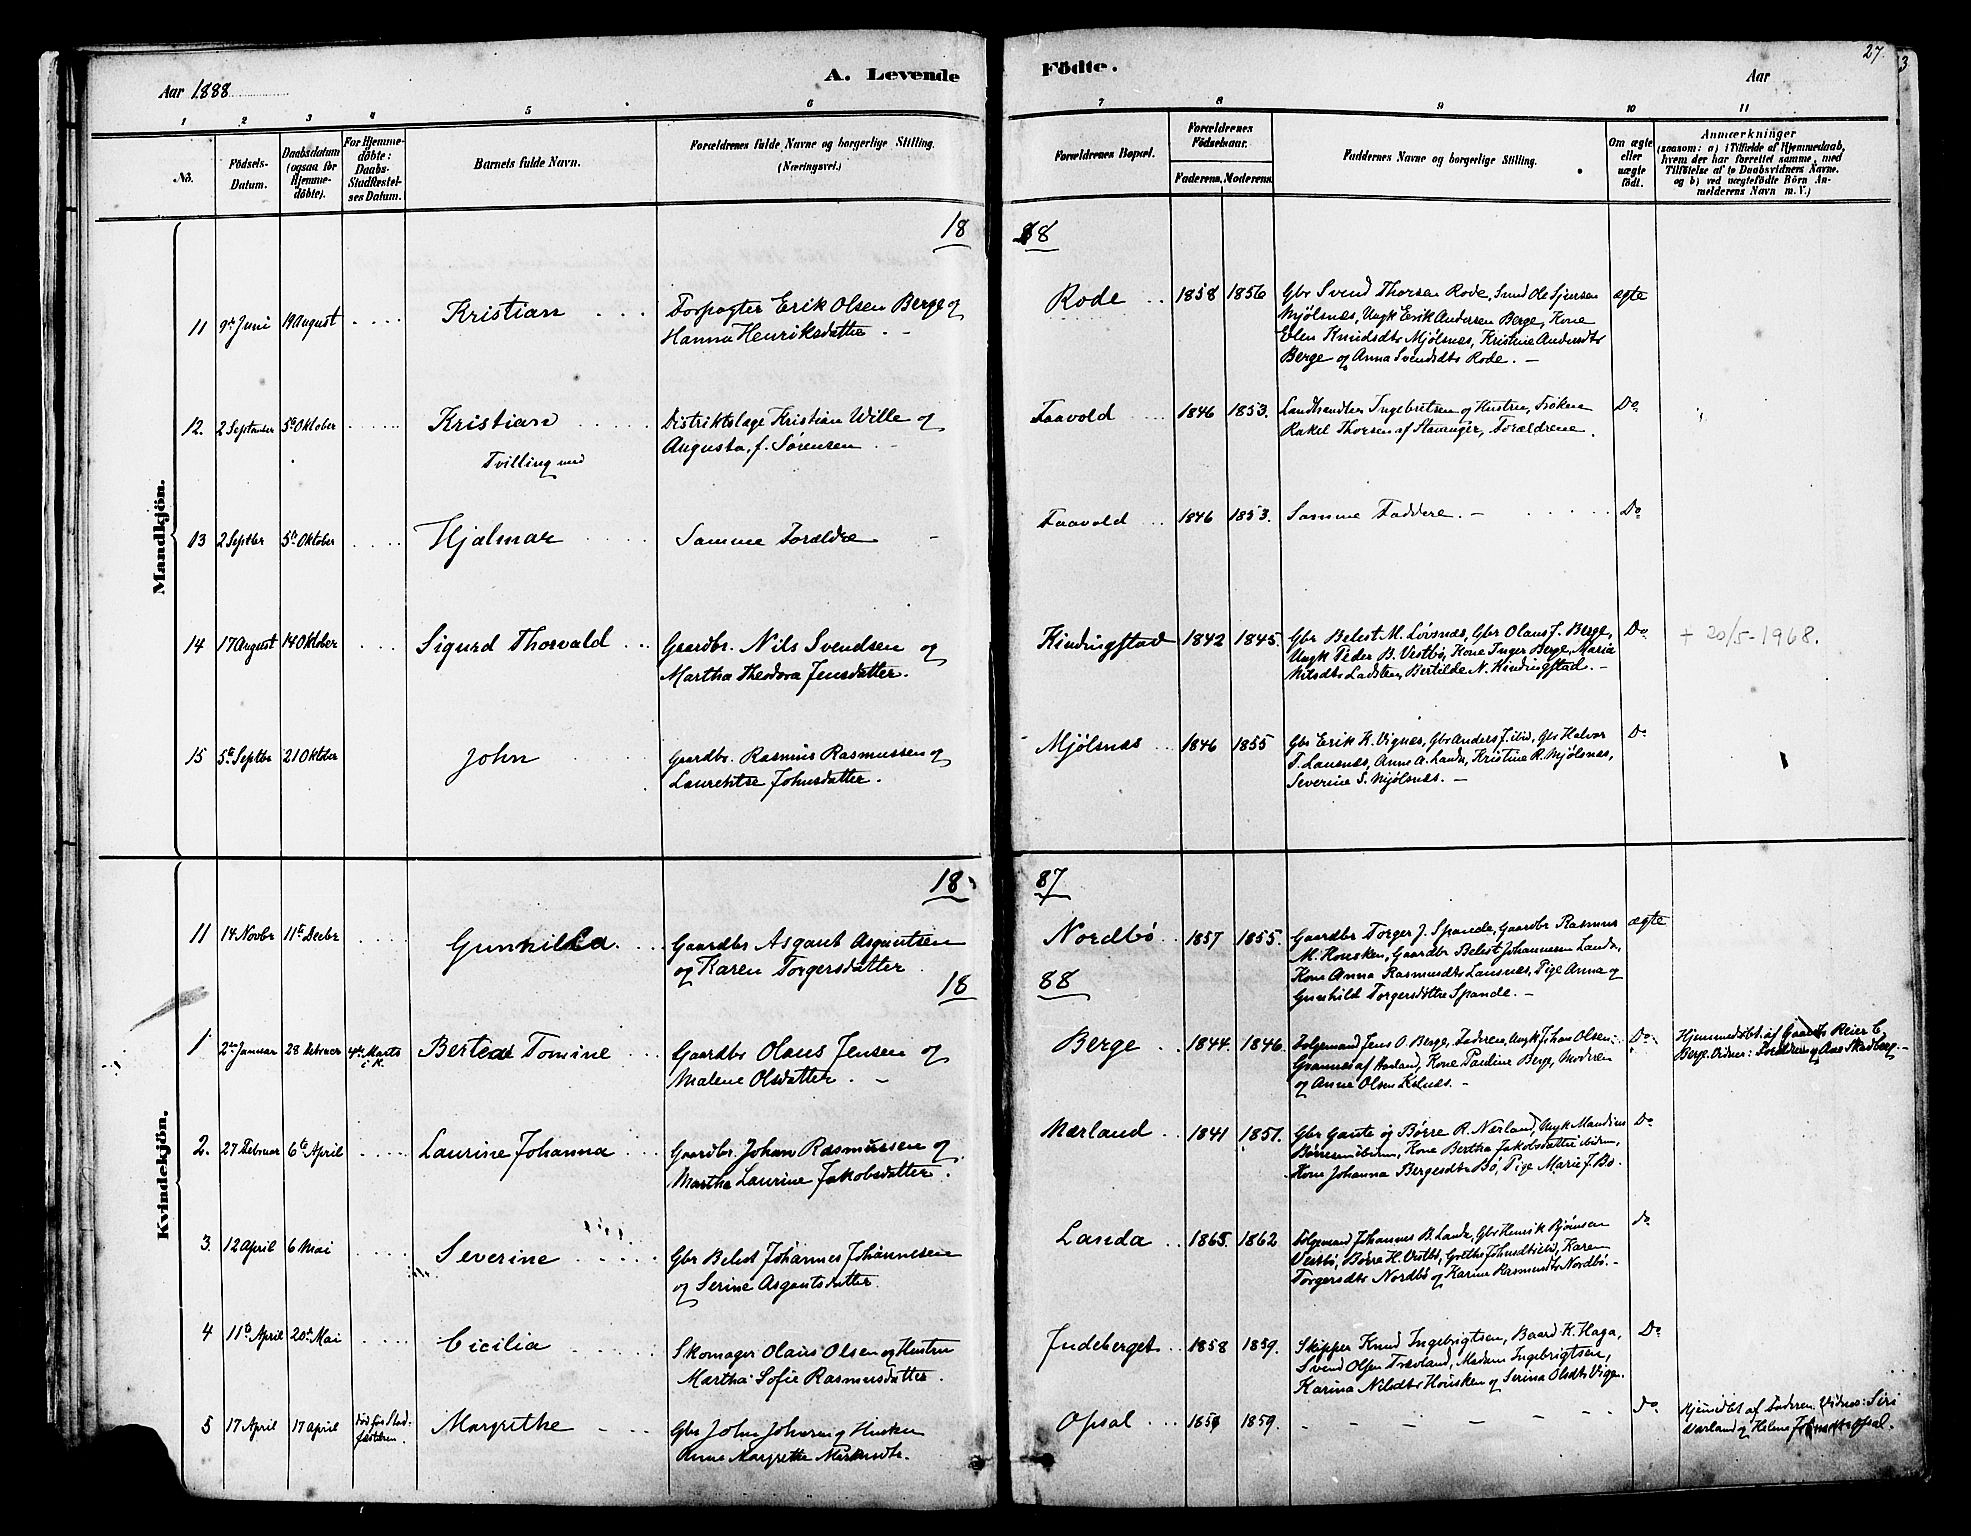 A. Levende Födte.
27.
3
Aar 1888
Aar
1 2 3 4 5 6 7 8 9 10 11
No.
Födsels-
Datum.
Daabsdatum
(ogsaa for
Hjemme-
döbte).
For Hjemme-
döbte:
Daabs-
Stadfæstel-
ses Datum.
Barnets fulde Navn.
Forældrenes fulde Navne og borgerlige Stilling.
(Næringsvei.)
Forældrenes Bopæl.
Forældrenes
Födselsaar.
Faderens. Moderens.
Faddernes Navne og borgerlige Stilling.
Om ægte
eller
uægte
födt.
Anmærkninger
(saasom: a) i Tilfælde af Hjemmedaab,
hvem der har forrettet samme, med
Tilföielse af to Daabsvidners Navne.
og b) ved uægtefödte Börn An-
melderens Navn m. V.)
Mandkjön.
18 88
11 9de Juni 19 August Kristian
Forpagter Erik Olsen Berge og
Hanna Henriksdatter
Rode 1858 1856
Gbr Svend Thorsen Rode, Svend Ole Sjursen
Mjølsnes, Ungk Erik Andersen Berge, Kone
Elen Knudsdtr Mjølsnes, Kristine Andersdtr
Berge og Anna Svendsdtr Rode. –
ægte
12. 2 September 5te Oktober Kristian
Tvilling med
Distriktslæge Kristian Wille og
Augusta, f. Sørensen
Faavold 1846 1853.
Landhandler Ingebretsen og Hustru, Frøken
Rakel Thorsen af Stavanger, Forældrene.
Do
13 2 Septbr 5te Oktober Hjalmar
Samme Forældre
Faavold 1846 1853.
Samme Faddere. –
Do
14 17 August 14 Oktober Sigurd Thorvald
Gaardbr. Nils Svendsen og
Martha Theodora Jensdatter.
Kindingstad 1842 1845.
Gbr Belest M. Løvsnes, Gbr Olaus J. Berge,
Ungk Peder B. Vestbø, Kone Inger Berge, Maria
Nilsdtr Ladsten, Bertilde N. Kindingstad. –
Do
+ 20/5-1968.
15 5te Septbr 21 Oktober John
Gaardbr. Rasmus Rasmussen og
Laurentse Johnsdatter.
Mjølsnes 1846 1855
Gbr Erik K. Vignes, Gbr Anders J. ibid, Gbr Halvor
T. Lausnes, Anne A. Landa, Kristine R. Mjølsnes,
Severine S. Mjølsnes. –
Do
Kvindekjön.
18 87
11 14 Novbr 11te Decbr Gunhilda.
Gaardbr Asgaut Asgautsen
og Karen Torgersdatter
Nordbø 1857 1855.
Gaardbr Torger J. Spande, Gaardbr Rasmus
M. Housken, Gaardbr Belest Johannesen Landa,
Kone Anna Rasmusdtr Lausnes, Pige Anna og
Gunhild Torgersdøttre Spande. –
ægte
18 88
1 2den Januar 28 Februar 4de Marts
i K.
Bertea Tomine
Gaardbr Olaus Jensen og
Malene Olsdatter. –
Berge 1844. 1846.
Folgemand Jens O. Berge, Faderen, Ungk Johan Olsen
Grannes af Haaland, Kone Pauline Berge, Moderen
og Anne Olsen
Do
Hjemmedøbt af Gaardbr Reier C.
Berge. Vidner: Forældrene og Ane Skadberg –
2. 27 Februar 6te April Laurine Johanna
Gaardbr. Johan Rasmussen og
Martha Laurine Jakobsdatter.
Nærland 1841 1851.
Gbr Gaute og Børre R. Nærland, Ungk Mandius
Børresen ibidem, Kone Bertha Jakobsdatter ibidem,
Kone Johanna Bergesdtr Bø, Pige Marie J. Bø.
Do
3. 12 April 6 Mai Severine
Gbr Belest Johannes Johannesen
og Serine Asgautsdatter.
Landa 1865. 1862
Folgemand Johannes B. Landa, Gbr Henrik Bjørnsen
Vestbø, Børre H. Vestbø, Grethe Johnsdtr ibid, Karen
Torgersdtr Nordbø og Karine Rasmusdtr Nordbø. –
do
4 11te April 20de Mai Cicilia
Skomager Olaus Olsen og Hustru
Martha Sofie Rasmusdatter.
Judeberget 1858 1859.
Skipper Knud Ingebrigtsen, Baard K. Haga,
Svend Olsen Trævland, Madam Ingebrigtsen,
Karina Nilsdtr Housken og Serina Olsdtr Vige.
Do
5 17 April 17 April død før Stad-
fæstelsen.
Margrethe
Gbr John Johnsen og Hustru
Anne Margrethe
Opsal 1859.
do
Hjemdøbt af Faderen. Vidner: Siri
Værland og Helene Opsal.